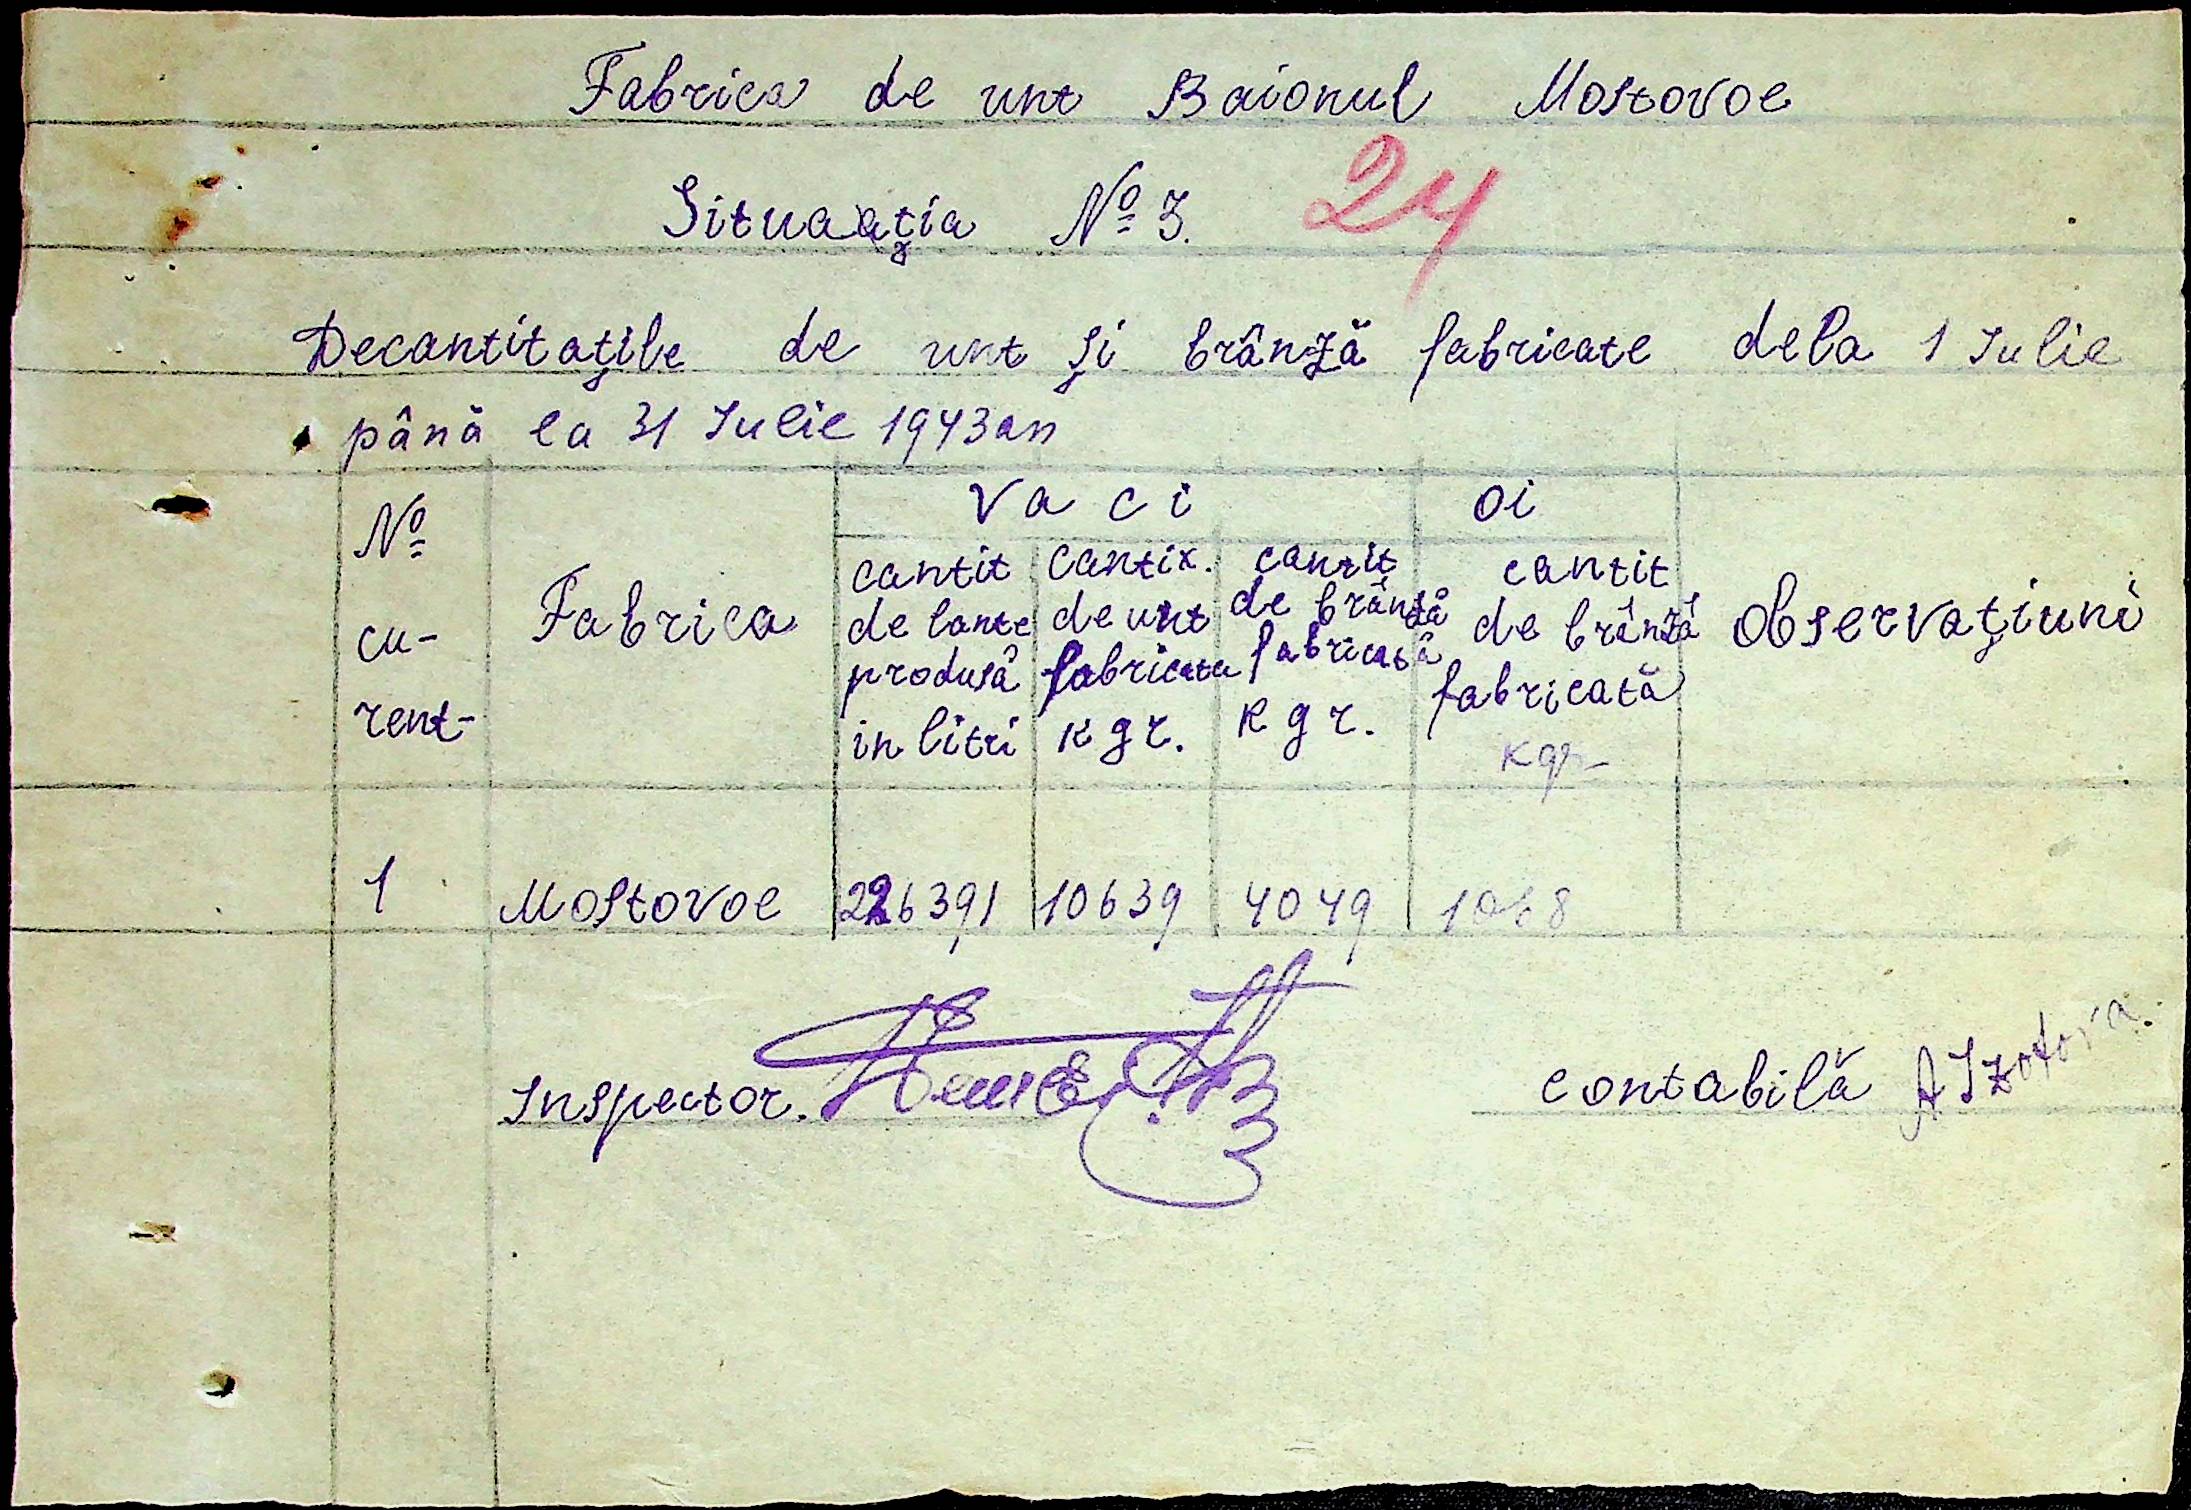 Fabrica de unt Raionul Mostovoe
Situaația № 3. 24
Decantitațile de unt și brânză fabricate dela 1 Iulie
până la 31 Iulie 1943 an
№ cu-rent- Fabrica vaci oi Observațiuni
cantit de lapte produsă in litri
cantit. de unt fabricata kgr.
cantit de brânză fabricată kgr.
cantit de brânză fabricată kgr
1 Mostovoe 226391 10639 4049
Inspector.
contabilă A Izotova.